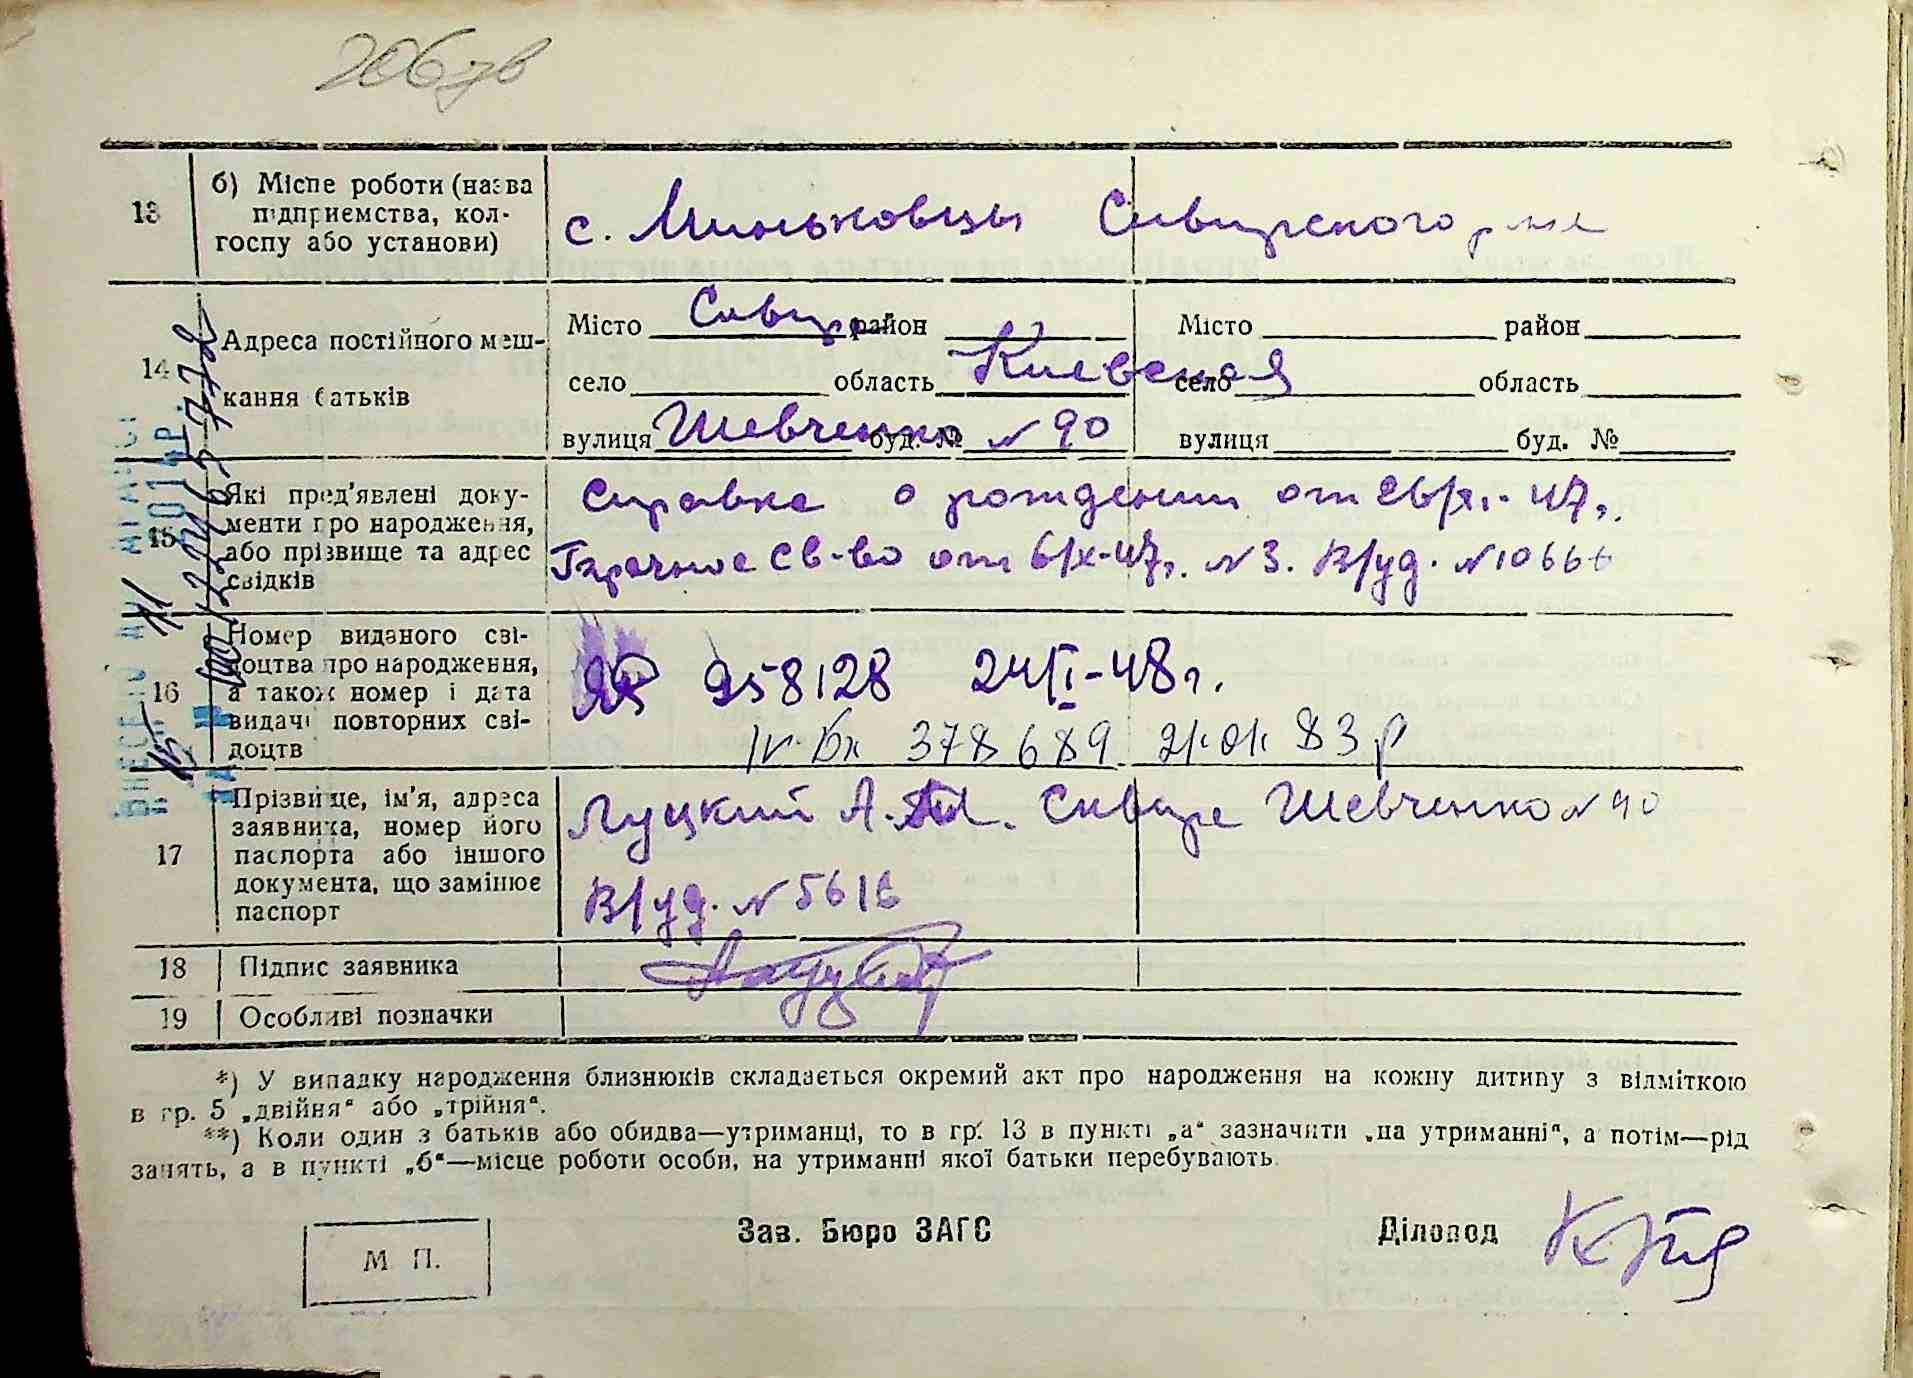 206зв
13
б) Місце роботи (назва
підприємства, кол-
госпу або установи)
с. Миньковцы Сквирского р-на
14
Адреса постійного меш-
кання батьків
Місто Сквира район
село область Киевская
вулиця Шевченко буд. № №90
Місто район
село область
вулиця буд. №
15
Які пред'явлені доку-
менти про народження,
або прізвище та адрес
свідків
Справка о рождении от 26/XI-47г.
Брачное св-во от 6/X-47г. №3. В/уд. №10666
16
Номер виданого сві-
доцтва про народження,
а також номер і дата
видачі повторних сві-
доцтв
958128 24/I-48г.
378689 21.01.83р
17
Прізвище, ім'я, адреса
заявника, номер його
паспорта або іншого
документа, що замінює
паспорт
Луцкий А. Сквира Шевченко №90
В/уд. №5616
18
Підпис заявника
19
Особливі позначки
*) У випадку народження близнюків складається окремий акт про народження на кожну дитину з відміткою
в гр. 5 „двійня“ або „трійня“.
**) Коли один з батьків або обидва—утриманці, то в гр. 13 в пункті „а“ зазначити „на утриманні“, а потім—рід
занять, а в пункті „б“—місце роботи особи, на утриманні якої батьки перебувають.
Зав. Бюро ЗАГС
Діловод
М П.